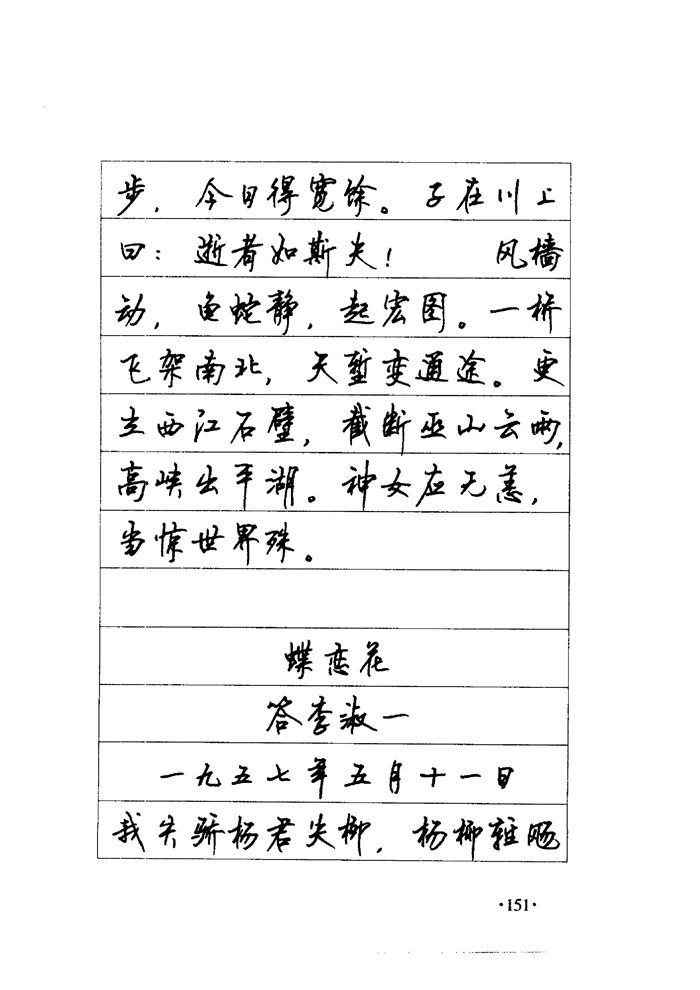 步，今日得宽馀。子在川上
曰：逝者如斯夫！ 风樯
动，龟蛇静，起宏图。一桥
飞架南北，天堑变通途。更
立西江石壁，截断巫山云雨，
高峡出平湖。神女应无恙，
当惊世界殊。
蝶恋花
答李淑一
一九五七年五月十一日
我失骄杨君失柳，杨柳轻飏
·151·